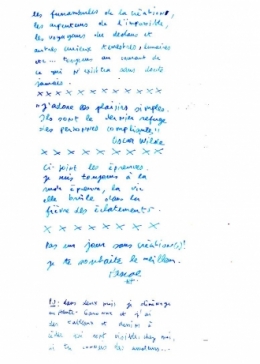 les funambules de la création,
les arpenteurs de l'impossible,
les voyageurs du dedans et
autres curieux terrestres, lunaires
etc... toujours au courant de
ce qui n'existera sans doute
jamais.
x x x x x x x x x x
"J'adore les plaisirs simples.
Ils sont le dernier refuge
des personnes compliquées"
Oscar Wilde
x x x x x x x x x x
Ci-joint les épreuves.
je suis toujours à la
épreuve, la vie
elle brûle dans la
fièvre des éclatements.
x x x x x x x x x
Pas un jour sans création(s)!
je te souhaite le meilleur.
Pascal
P.S: dans deux mois je déménage
et j'ai
des cailloux et
à
sont visibles chez moi,
si tu connais les amateurs...